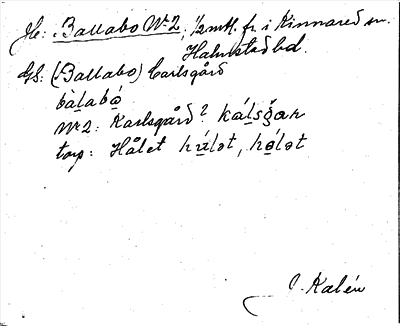 Je: Ballabo No 2, 1/2 mtl. fr. i Kinnared sn.
Halmstad hd.
GS: (Ballabo) Carlsgård
bàlabó
No 2: Karlsgård? kálsgar
torp: Hålet húlət, hólət
J. Kalén